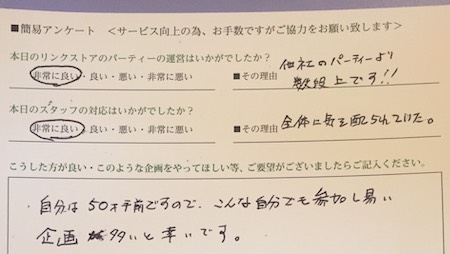 ■簡易アンケート <サービス向上の為、お手数ですがご協力をお願い致します>
本日のリンクストアのパーティーの運営はいかがでしたか?
非常に良い・良い・悪い・非常に悪い ■その理由 他社のパーティーより
数段上です!!
本日のスタッフの対応はいかがでしたか?
非常に良い・良い・悪い・非常に悪い ■その理由 全体に気を配られていた。
こうした方が良い・このような企画をやってほしい等、ご要望がございましたらご記入ください。
・自分は50才手前ですので、こんな自分でも参加し易い
企画 多いと幸いです。